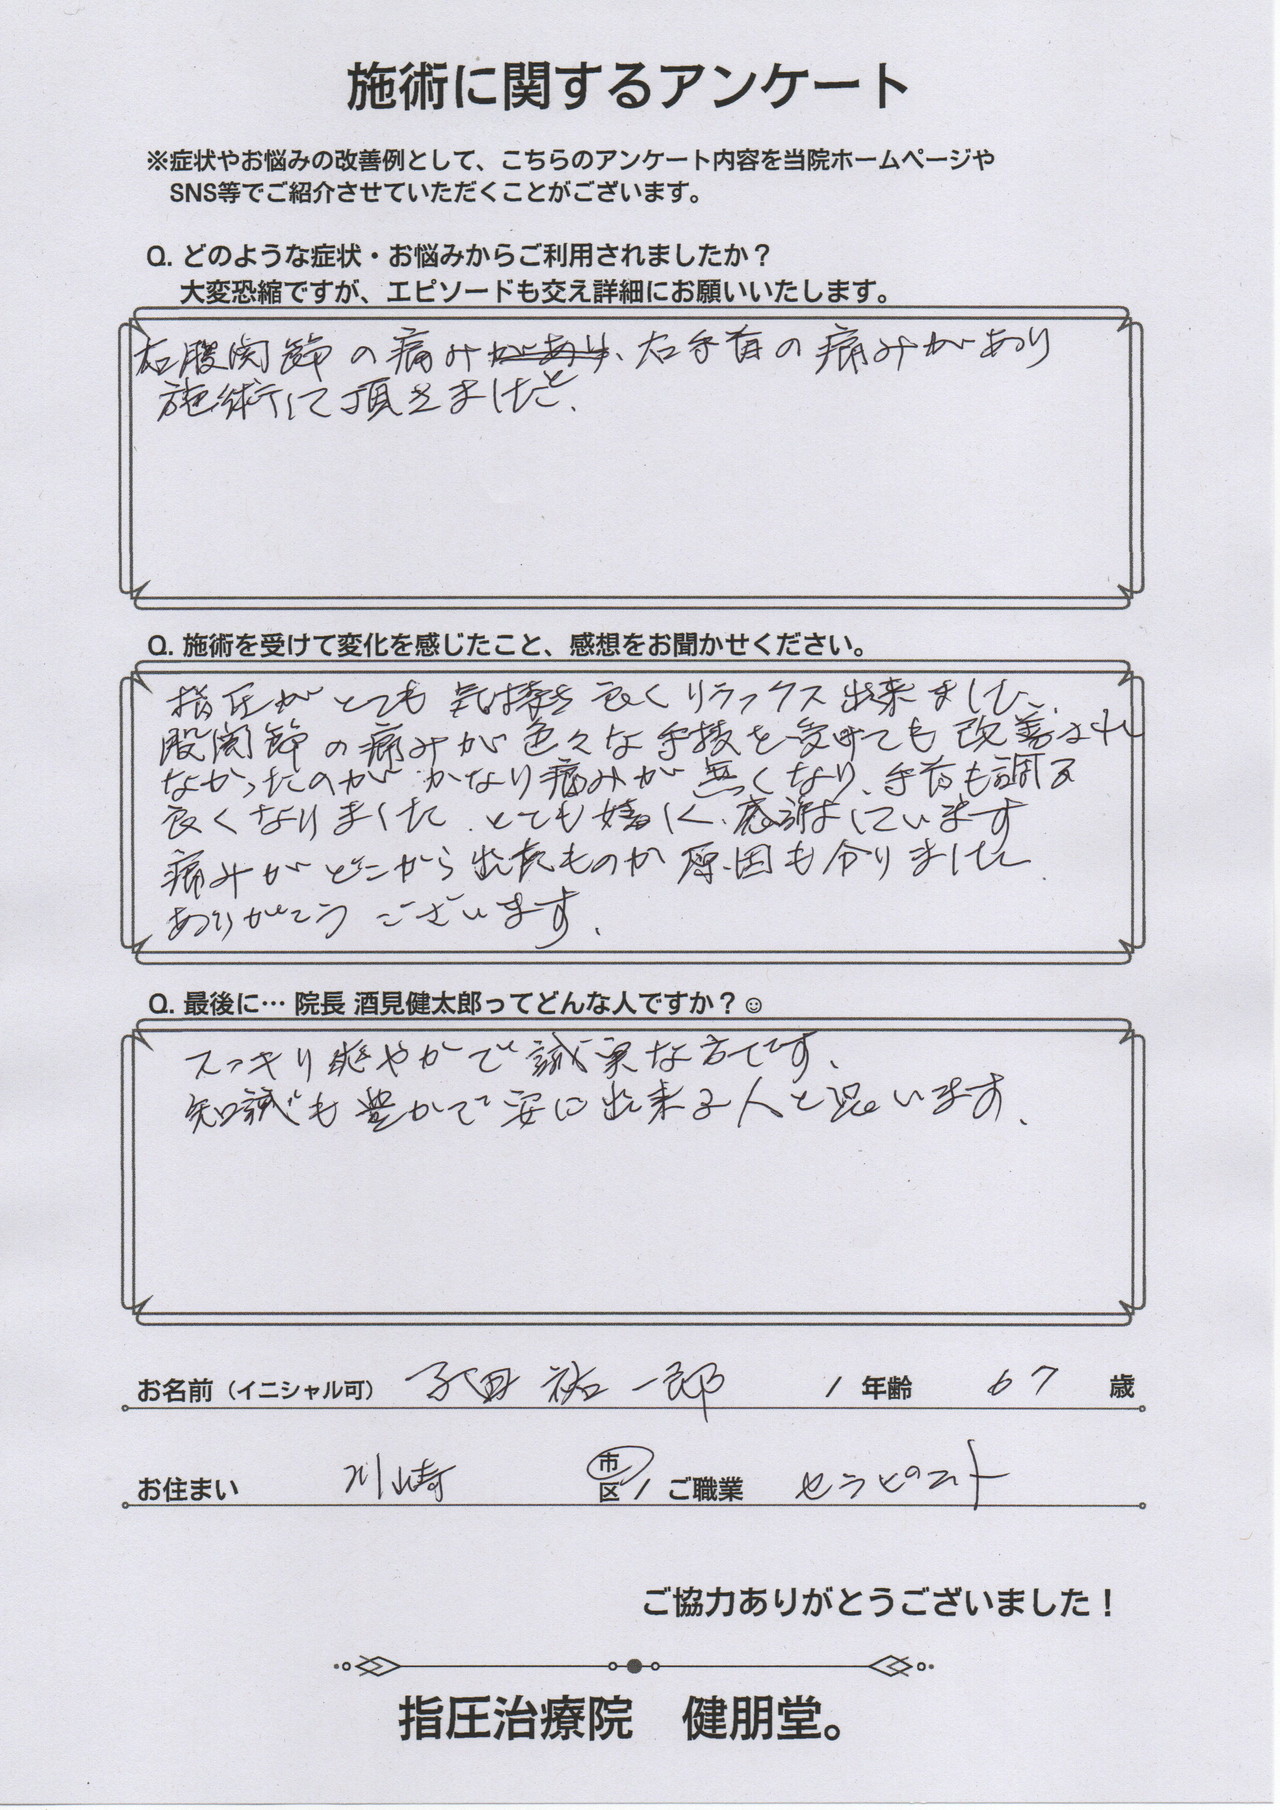 施術に関するアンケート
※症状やお悩みの改善例として、こちらのアンケート内容を当院ホームページや
SNS等でご紹介させていただくことがございます。
Q. どのような症状・お悩みからご利用されましたか？
大変恐縮ですが、エピソードも交え詳細にお願いいたします。
右股関節の痛み、右手首の痛みがあり
施術して頂きました。
Q. 施術を受けて変化を感じたこと、感想をお聞かせください。
指圧がとても気持き良くリラックス出来ました、
股関節の痛みが色々な手技を受けても改善され
なかったのが かなり痛みが無くなり、手首も調子
良くなりました。とても嬉しく、感謝しています
痛みがどこから出たものか 原因も分りました
ありがとう ございます、
Q. 最後に… 院長 酒見健太郎ってどんな人ですか？☺
スッキリ爽やかで 誠実な方です、
知識も豊かで 安心出来る人と思います、
お名前（イニシャル可） 祐一郎 / 年齢 67 歳
お住まい 川崎 市区 / ご職業 セラピスト
ご協力ありがとうございました！
指圧治療院 健朋堂。